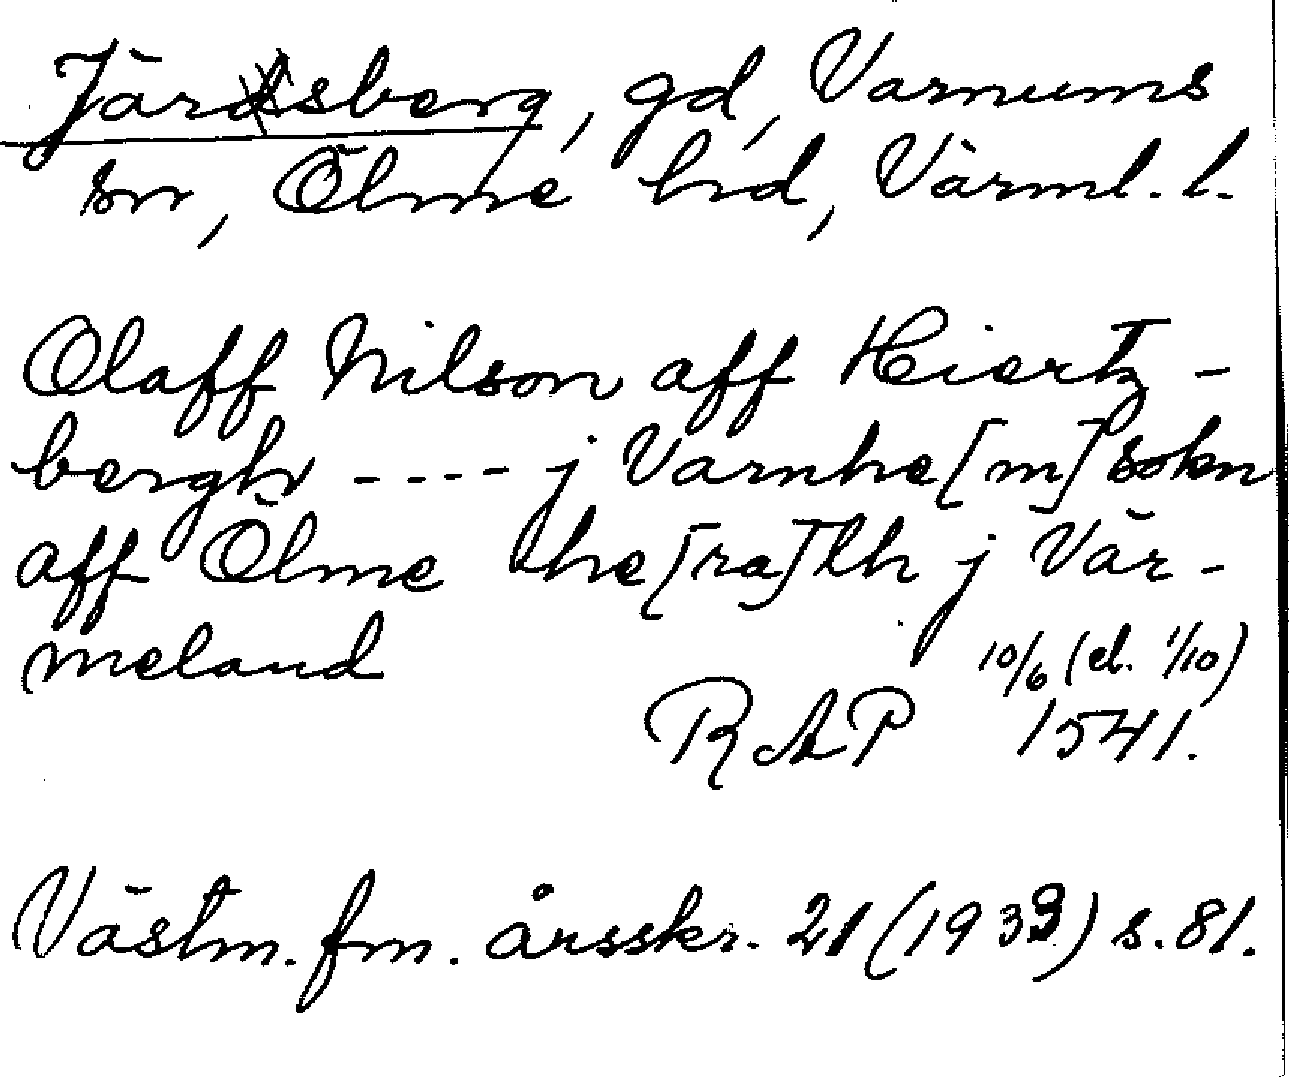 Järsberg, gd, Varnums
sn, Ölme hd, Värml. l.
Olaff Nilson aff Hiertz-
bergh ---- j Varnhe[m] sokn
aff Ölme he[ra]th j Vär-
meland
10/6 (el. 1/10)
RAP 1541.
Västm. fm. årsskr. 21 (1933) s. 81.